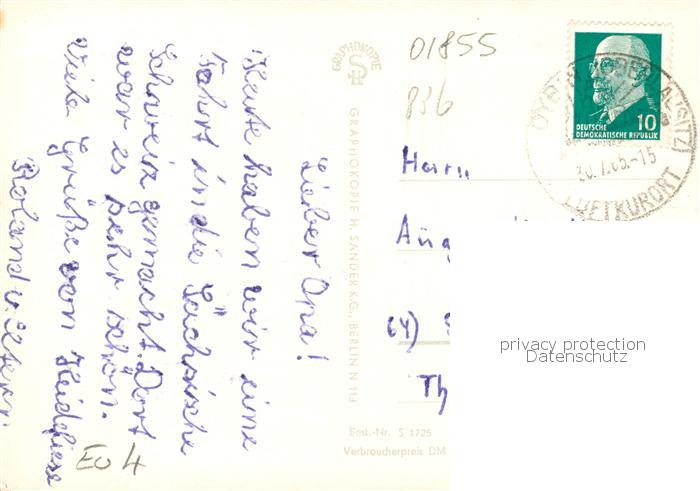 Lieber Opa!
Heute haben wir eine
Fahrt in die Sächsische
Schweiz gemacht. Dort
war es sehr schön.
Viele Grüße von
Roland u. Eltern
EO4
GRAPHOKOPIE
GRAPHOKOPIE H. SANDER K.G., BERLIN N 113
Best.-Nr. S 1725
Verbraucherpreis DM
01855
836
10
DEUTSCHE
DEMOKRATISCHE REPUBLIK
OYBIN (OBERLAUSITZ)
-15
LUFTKURORT
Herrn
Aug
64)
Th
privacy protection
Datenschutz